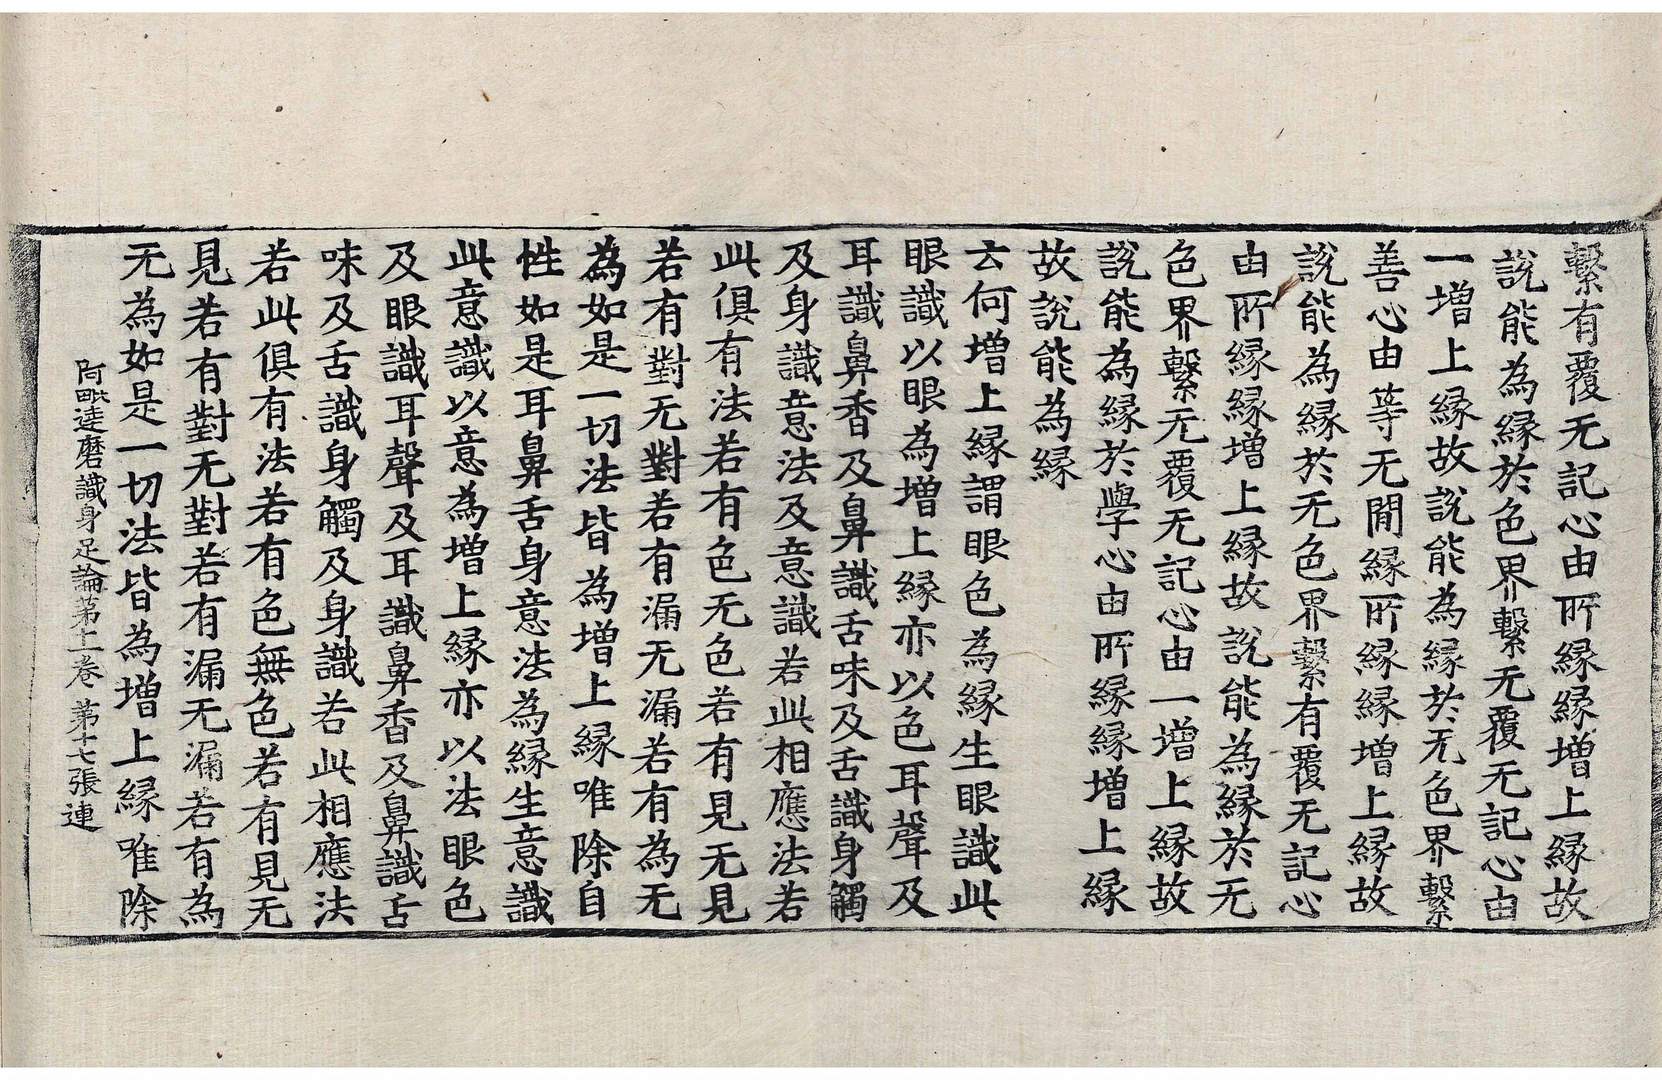 繫有覆无記心由所縁縁增上縁故
說能為縁於色界繫无覆无記心由
一增上縁故說能為縁於无色界繫
善心由等无閒縁所縁縁增上縁故
說能為縁於无色界繫有覆无記心
由所縁縁增上縁故說能為縁於无
色界繫无覆无記心由一增上縁故
說能為縁於學心由所縁縁增上縁
故說能為縁
云何增上縁謂眼色為縁生眼識此
眼識以眼為增上縁亦以色耳聲及
耳識鼻香及鼻識舌味及舌識身觸
及身識意法及意識若此相應法若
此俱有法若有色无色若有見无見
若有對无對若有漏无漏若有為无
為如是一切法皆為增上縁唯除自
性如是耳鼻舌身意法為縁生意識
此意識以意為增上縁亦以法眼色
及眼識耳聲及耳識鼻香及鼻識舌
味及舌識身觸及身識若此相應法
若此俱有法若有色無色若有見无
見若有對无對若有漏无漏若有為
无為如是一切法皆為增上縁唯除
阿毗達磨識身足論第十一卷 第十七張 連